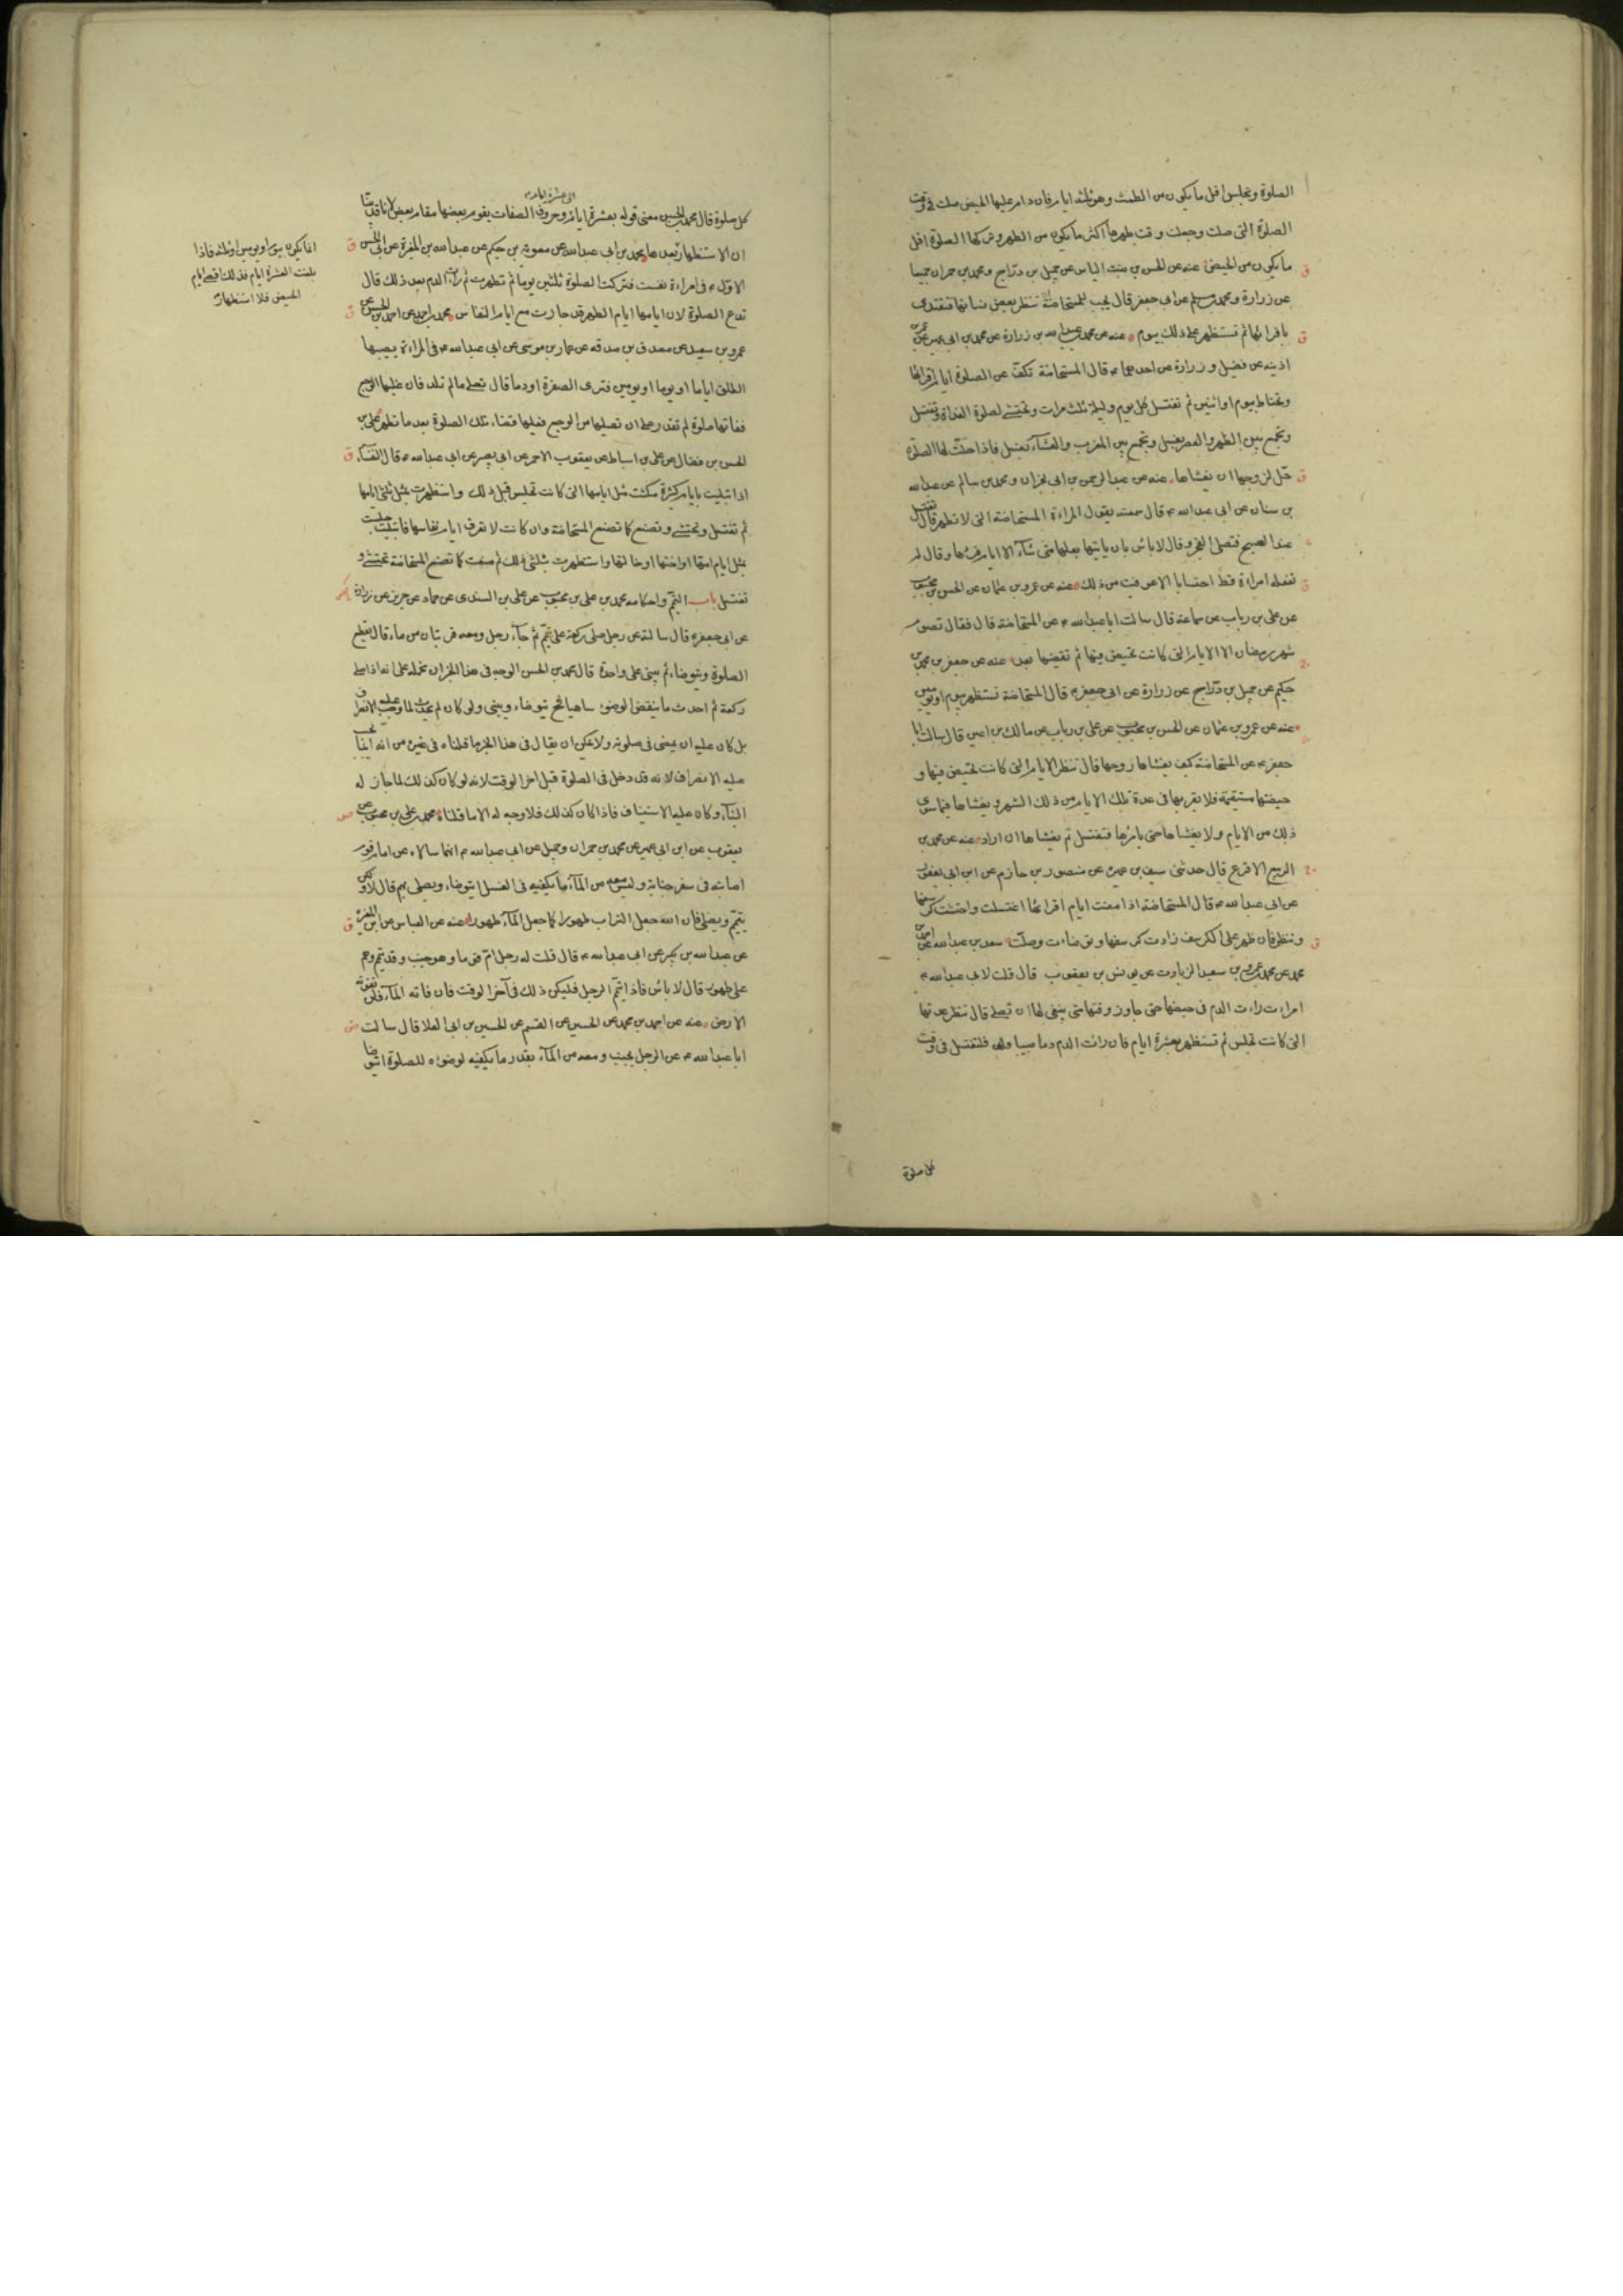 الصلوة وتجلس اقل ما يكون من الطمث وهو ثلثة ايام فان دام عليها الحيض صلت في وقت
الصلوة التي صلت وجعلت وقت طهرها اكثر ما يكون من الطهر وتركها الصلوة اقل
ما يكون من الحيض عنه عن الحسن بن بنت الياس عن جميل بن دراج ومحمد بن حمران جميعا
عن زرارة ومحمد بن مسلم عن ابي جعفر قال يجب للمستحاضة تنظر بعض نسائها فتقتدى
باقرائها ثم تستظهر على ذلك بيوم عنه عن محمد بن عبد الله بن زرارة عن محمد بن ابي عمير عن عمر بن
اذينه عن فضيل و زرارة عن احدهما ع قال المستحاضة تكف عن الصلوة ايام اقرائها
وتحتاط بيوم او اثنين ثم تغتسل كل يوم وليلة ثلث مرات وتحتشى لصلوة الغداة وتغتسل
وتجمع بين الظهر والعصر بغسل وتجمع بين المغرب والعشاء بغسل فاذا حلت لها الصلوة
حل لزوجها ان يغشاها عنه عن عبد الرحمن بن ابي نجران ومحمد بن سالم عن عبد الله
بن سنان عن ابي عبد الله ع قال سمعته يقول المراءة المستحاضة التي لا تطهر قال تغتسل
عند الصبح فتصلى الفجر وقال لا باس بان ياتيها بعلها متى شاء الا ايام قرئها وقال لم
تفعله امراءة قط احتسابا الا عوفيت من ذلك عنه عن عمرو بن عثمان عن الحسن بن محبوب
عن على بن رياب عن سماعة قال سالت ابا عبد الله ع عن المستحاضة قال فقال تصوم
شهر رمضان الا الايام التي كانت تحيض فيها ثم تقضيها بعد عنه عن جعفر بن محمد بن
حكيم عن جميل بن دراج عن زرارة عن ابي جعفر ع قال المستحاضة تستظهر بيوم او يومين
عنه عن عمرو بن عثمان عن الحسن بن محبوب عن على بن رياب عن مالك بن اعين قال سالت ابا
جعفر ع عن المستحاضة كيف يغشاها زوجها قال تنظر الايام التي كانت تحيض فيها و
حيضتها مستقيمة فلا يقربها في عدة تلك الايام من ذلك الشهر و يغشاها فيما سوى
ذلك من الايام ولا يغشاها حتى يامرها فتغتسل ثم يغشاها ان اراد عنه عن محمد بن
الربيع الاقرع قال حدثني سيف بن عميرة عن منصور بن حازم عن ابن ابي يعفور
عن ابي عبد الله ع قال المستحاضة اذا مضت ايام اقرائها اغتسلت واحتشت كرسفها
وتنظر فان ظهر على الكرسف زادت كرسفها وتوضاءت وصلت سعد بن عبد الله عن احمد بن
محمد عن محمد بن عمرو بن سعيد الزيات عن يونس بن يعقوب قال قلت لابي عبد الله ع
امراءت راءت الدم في حيضها حتى جاوز وقتها متى ينبغي لها ان تصلي قال تنظر عدتها
التي كانت تجلس ثم تستظهر بعشرة ايام فان رات الدم دما صبيبا فلتغتسل في وقت
كل صلوة
الى عشرة ايام
كل صلوة قال محمد بن الحسن معنى قوله بعشرة ايام وحروف الصفات يقوم بعضها مقام بعض لانا قد بينا
ان الاستظهار بعد ها محمد بن ابي عبد الله عن معوية بن حكيم عن عبد الله بن المغيرة عن ابي الحسن
الاول ع في امراءة نفست فتركت الصلوة ثلثين يوما ثم تطهرت ثم رات الدم بعد ذلك قال
تدع الصلوة لان ايامها ايام الطهر قد جازت مع ايام النفاس محمد بن احمد عن احمد بن الحسن عن
عمرو بن سعيد عن مصدق بن صدقه عن عمار بن موسى عن ابي عبد الله ع في المراءة يصيبها
الطلق اياما او يوما او يومين فترى الصفرة او دما قال تصلي ما لم تلد فان غلبها الوجع
ففاتها صلوة لم تقدر على ان تصليها من الوجع فعليها قضاء تلك الصلوة بعد ما تطهر على بن
الحسن بن فضال عن على بن اسباط عن يعقوب الاحمر عن ابي بصير عن ابي عبد الله ع قال النفساء
اذا ابتليت بايام كثيرة مكثت مثل ايامها التي كانت تجلس قبل ذلك واستظهرت بمثل ثلثي ايامها
ثم تغتسل وتحتشى وتصنع كما تصنع المستحاضة وان كانت لا تعرف ايام نفاسها فابتليت جلست
بمثل ايام امها او اختها او خالتها واستظهرت بثلثي ذلك ثم صنعت كما تصنع المستحاضة تحتشى و
تغتسل باب التيمم واحكامه محمد بن على بن محبوب عن على بن السندى عن حماد عن حريز عن زرارة
عن ابي جعفر ع قال سالته عن رجل صلى ركعة على تيمم ثم جاء رجل ومعه قربتان من ماء قال يقطع
الصلوة ويتوضاء ثم يبني على واحدة قال محمد بن الحسن الوجه في هذا الخبر ان نحمله على انه اذا صلى
ركعة ثم احدث ما ينقض الوضوء ساهيا تح يتوضاء ويبنى ولو كان لم يحدث لما وجب عليه الانصراف
بل كان عليه ان يمضى في صلوته ولا يمكن ان يقال في هذا الخبر ما قلناه في غيره من انه انما يجب
عليه الانصراف لانه قد دخل في الصلوة قبل اخر الوقت لانه لو كان كذلك لما جاز له
البناء وكان عليه الاستيناف فاذا كان كذلك فلا وجه له الا ما قلناه محمد بن على بن محبوب عن
يعقوب عن ابن ابي عمير عن محمد بن حمران وجميل عن ابي عبد الله ع انهما سالاه عن امام قوم
اصابته في سفر جنابة وليس معه من الماء ما يكفيه في الغسل ايتوضاء ويصلى بهم قال لا ولكن
يتيمم ويصلى فان الله جعل التراب طهورا كما جعل الماء طهورا عنه عن العباس عن ابن المغيرة
عن عبد الله بن بكير عن ابي عبد الله ع قال قلت له رجل ام قوما وهو جنب وقد تيمم وهم
على طهور قال لا باس فاذا تيمم الرجل فليكن ذلك في آخر الوقت فان فاته الماء فلن تفوته
الارض عنه عن احمد بن محمد عن الحسين عن القسم عن الحسين بن ابي العلا قال سالت
ابا عبد الله ع عن الرجل يجنب ومعه من الماء بقدر ما يكفيه لوضوءه للصلوة ايتوضا
انما يكون بيوم او يومين او ثلثه فاذا
بلغت العشرة ايام فذلك اقصى ايام
الحيض فلا استظهار